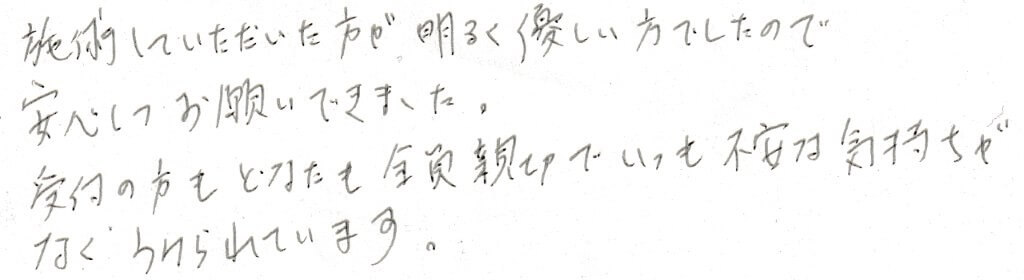 施術していただいた方が明るく優しい方でしたので
安心してお願いできました。
受付の方もどなたも全員親切でいつも不安な気持ちが
なくうけられています。